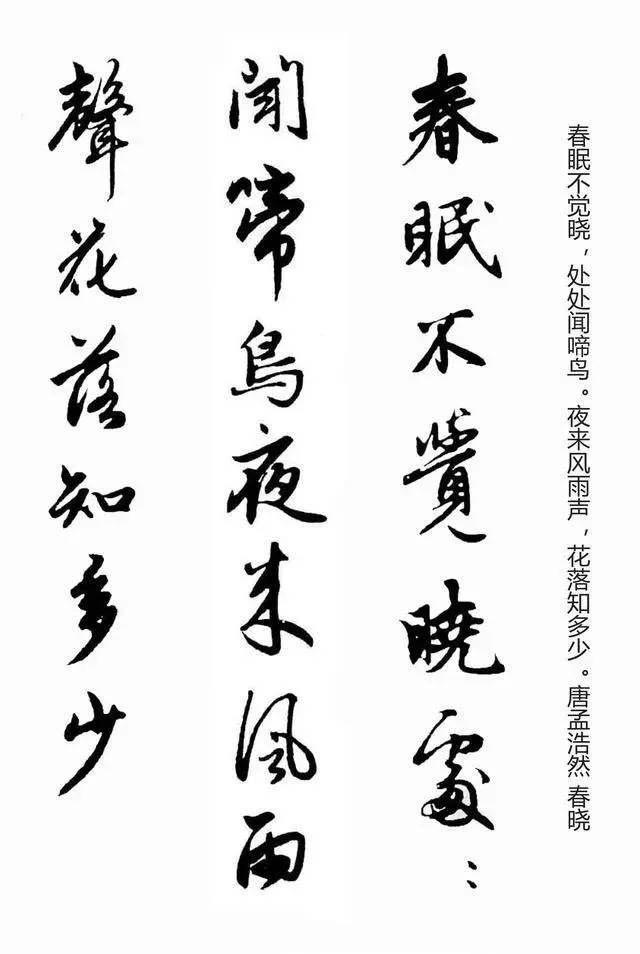 春眠不觉晓，处处闻啼鸟。夜来风雨声，花落知多少。唐孟浩然 春晓
春眠不覺曉處:
聞啼鳥夜来風雨
聲花落知多少